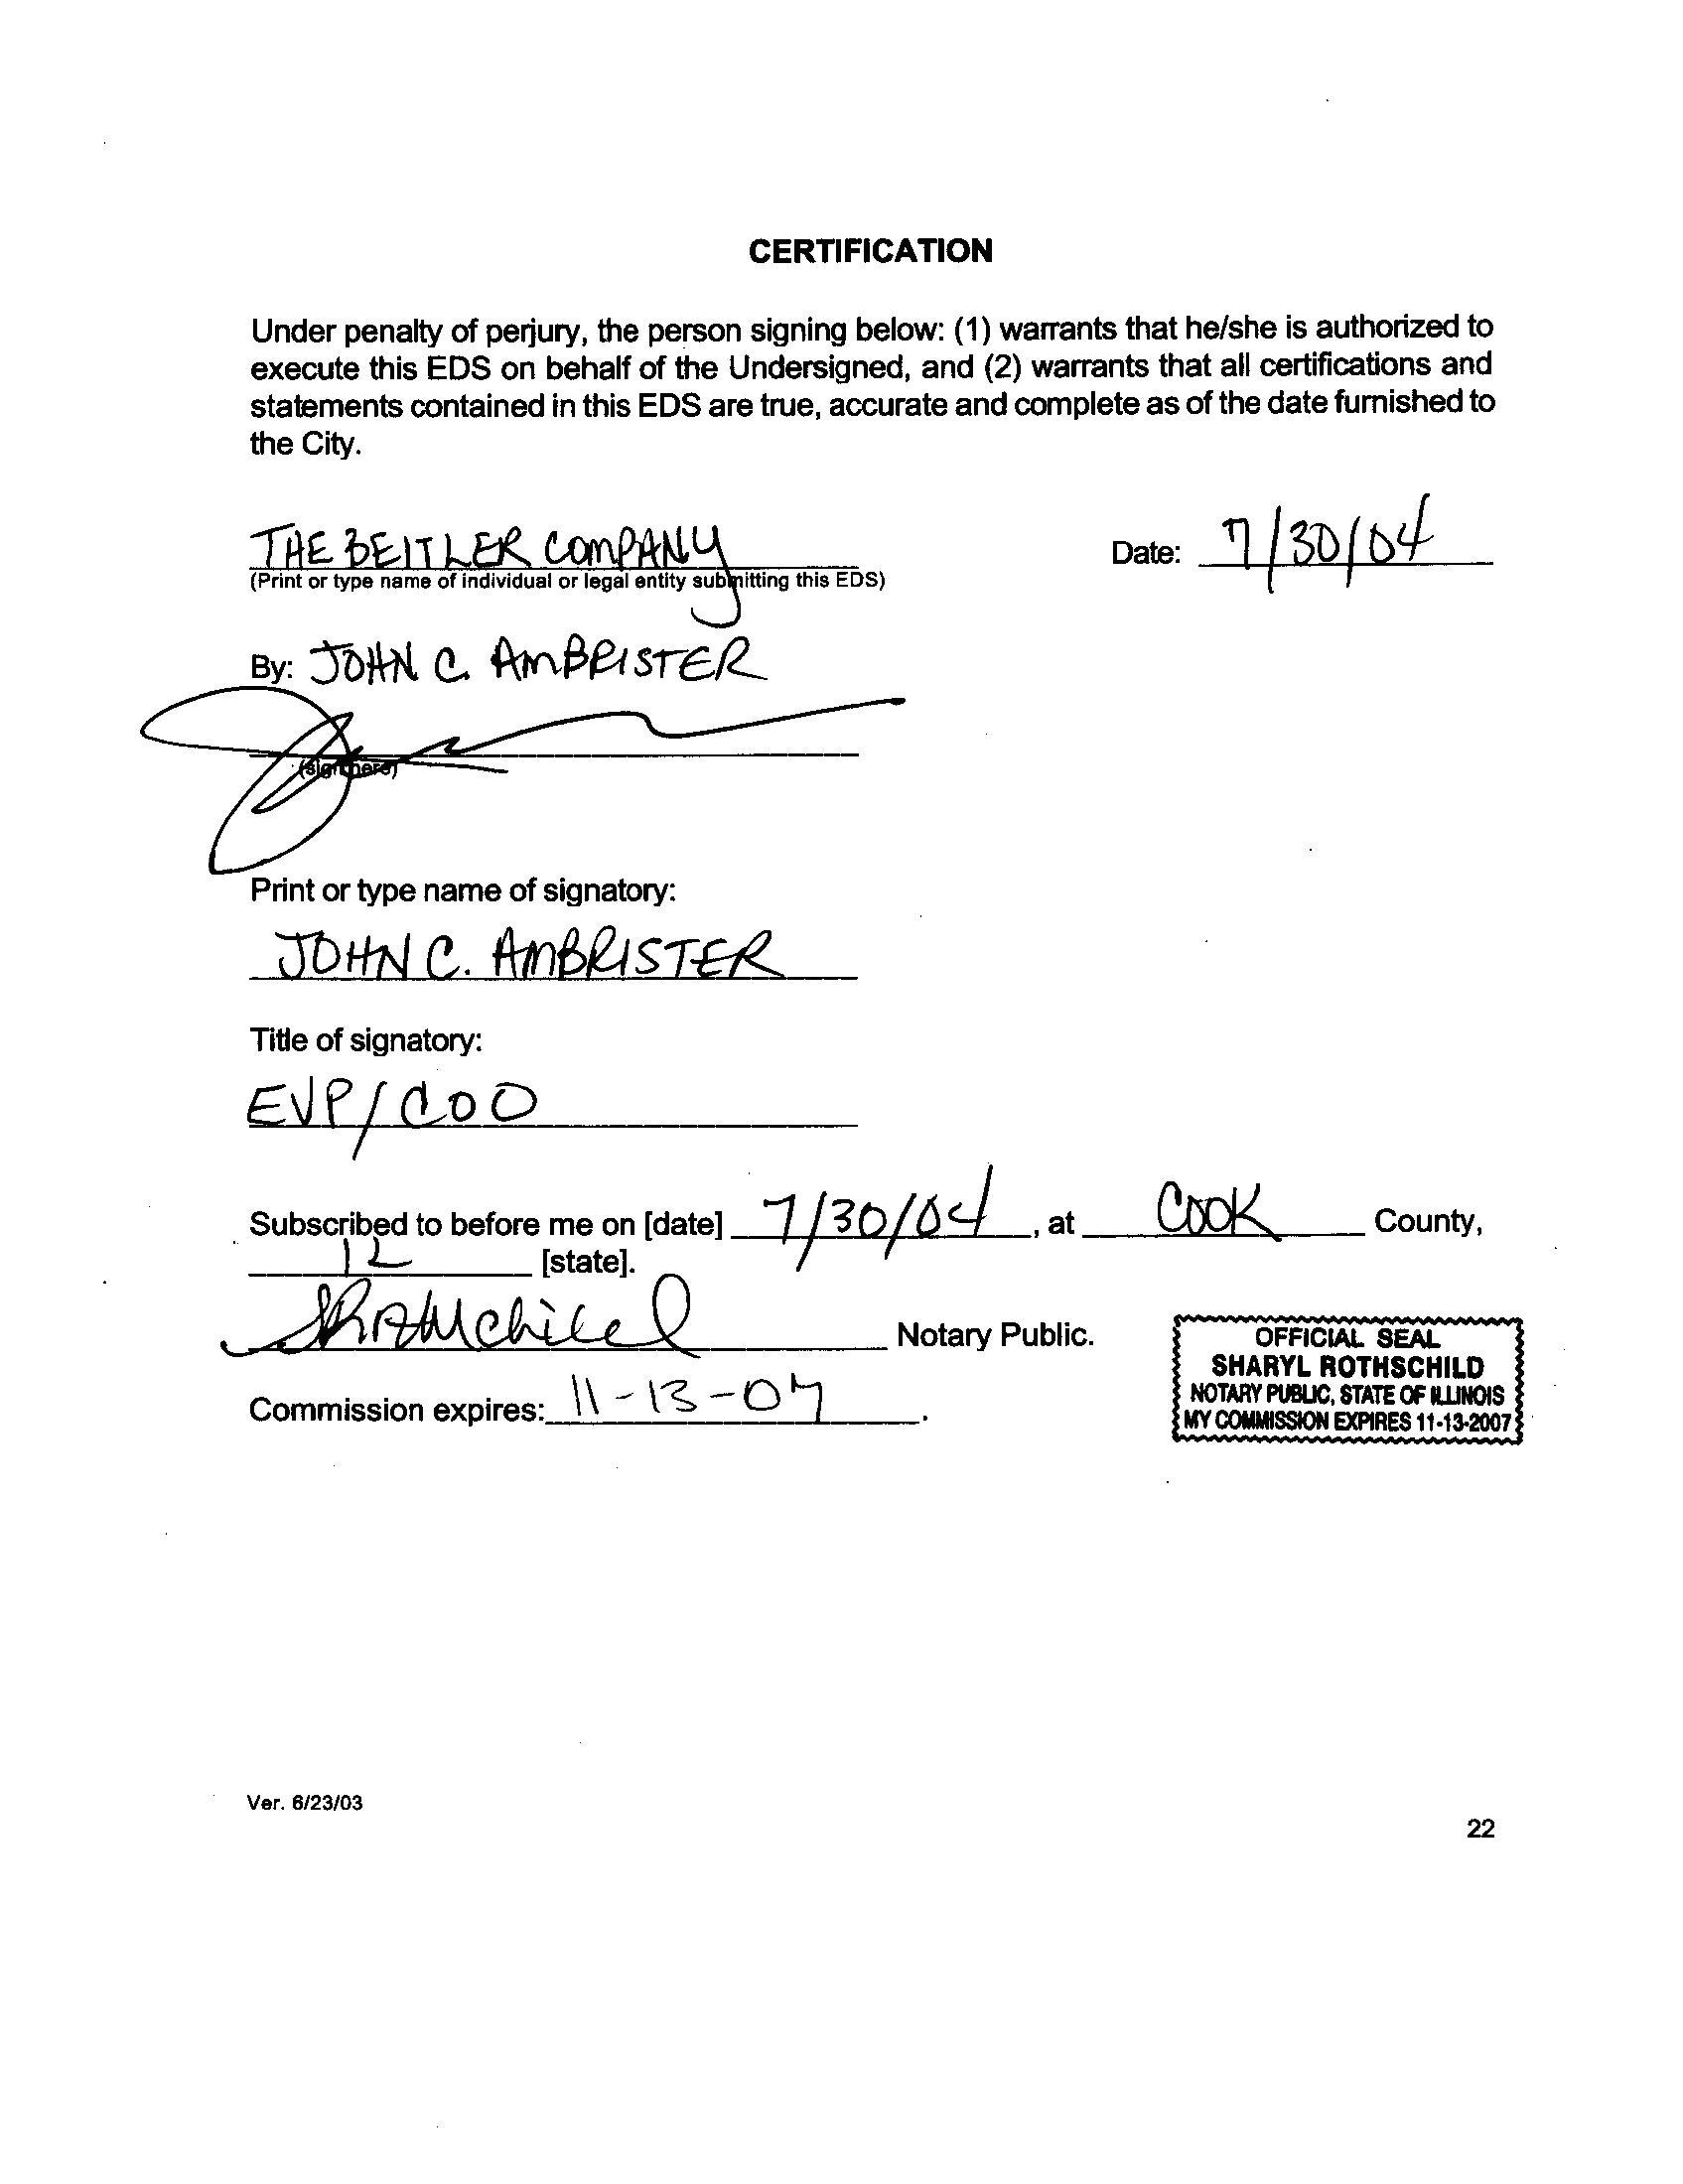 CERTIFICATION
Under penalty of perjury, the person signing below: (1) warrants that he/she is authorized to
execute this EDS on behalf of the Undersigned, and (2) warrants that all certifications and
statements contained in this EDS are true, accurate and complete as of the date furnished to
the City.
THE BEITLER COMPANY Date: 7/30/04
(Print or type name of individual or legal entity submitting this EDS)
By: JOHN C. AMBRISTER
(sign here)
Print or type name of signatory:
JOHN C. AMBRISTER
Title of signatory:
EVP/COO
Subscribed to before me on [date] 7/30/04, at COOK County,
IL [state].
Notary Public.
Commission expires: 11-13-07.
OFFICIAL SEAL
SHARYL ROTHSCHILD
NOTARY PUBLIC, STATE OF ILLINOIS
MY COMMISSION EXPIRES 11-13-2007
Ver. 6/23/03
22